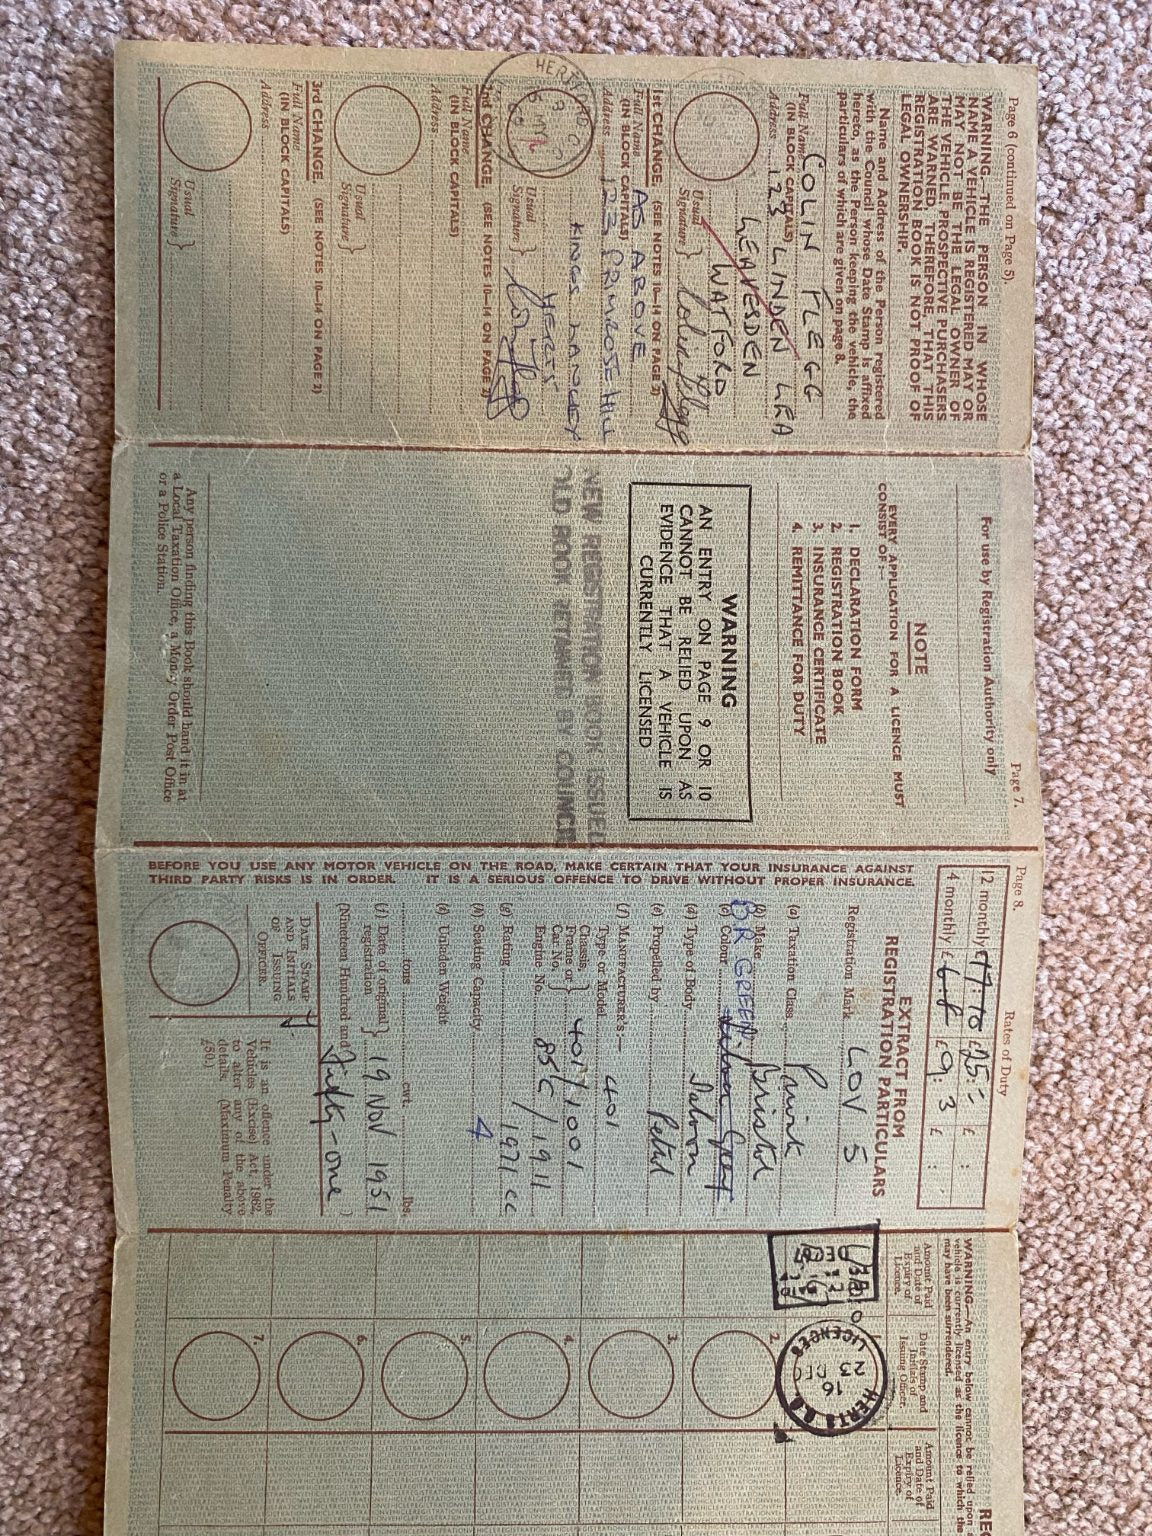 Page 6 (continued on Page 5).
WARNING.—THE PERSON IN WHOSE
NAME A VEHICLE IS REGISTERED MAY OR
MAY NOT BE THE LEGAL OWNER OF
THE VEHICLE. PROSPECTIVE PURCHASERS
ARE WARNED, THEREFORE, THAT THIS
REGISTRATION BOOK IS NOT PROOF OF
LEGAL OWNERSHIP.
Name and Address of the Person registered
with the Council whose Date Stamp is affixed
hereto, as the Person keeping the vehicle, the
particulars of which are given on page 8.
Full Name COLIN FLEGG
(IN BLOCK CAPITALS)
Address 123 LINDEN LEA
LEAVESDEN
WATFORD
Usual
Signature } Colin Flegg
1st CHANGE. (SEE NOTES 10—14 ON PAGE 2)
Full Name AS ABOVE
(IN BLOCK CAPITALS)
Address 123 PRIMROSE HILL
KINGS LANGLEY
HERTS
Usual
Signature }
2nd CHANGE. (SEE NOTES 10—14 ON PAGE 2)
Full Name
(IN BLOCK CAPITALS)
Address
Usual
Signature }
3rd CHANGE. (SEE NOTES 10—14 ON PAGE 2)
Full Name
(IN BLOCK CAPITALS)
Address
Usual
Signature }
Page 7.
For use by Registration Authority only
NOTE
EVERY APPLICATION FOR A LICENCE MUST
CONSIST OF:—
1. DECLARATION FORM
2. REGISTRATION BOOK
3. INSURANCE CERTIFICATE
4. REMITTANCE FOR DUTY
WARNING
AN ENTRY ON PAGE 9 OR 10
CANNOT BE RELIED UPON AS
EVIDENCE THAT A VEHICLE IS
CURRENTLY LICENSED
NEW REGISTRATION BOOK ISSUED
OLD BOOK RETAINED BY COUNCIL
Any person finding this Book should hand it in at
a Local Taxation Office, a Money Order Post Office
or a Police Station.
BEFORE YOU USE ANY MOTOR VEHICLE ON THE ROAD, MAKE CERTAIN THAT YOUR INSURANCE AGAINST
THIRD PARTY RISKS IS IN ORDER. IT IS A SERIOUS OFFENCE TO DRIVE WITHOUT PROPER INSURANCE.
Page 8. Rates of Duty
12 monthly £17-10 £25:- £ :
4 monthly £ £9:3 £ :
EXTRACT FROM
REGISTRATION PARTICULARS
Registration Mark LOV 5
(a) Taxation Class Private
(b) Make Bristol
(c) Colour BR GREEN.
(d) Type of Body Saloon
(e) Propelled by Petrol
(f) MANUFACTURER'S:—
Type or Model 401
Chassis,
Frame or
Car No. } 401/1001
Engine No. 85C/1911
(g) Rating 1971 cc
(h) Seating Capacity 4
(i) Unladen Weight
tons cwt. lbs
(j) Date of original
registration } 19 NOV 1951
(Nineteen Hundred and Fifty-one)
DATE STAMP
AND INITIALS
OF ISSUING
OFFICER.
It is an offence under the
Vehicles (Excise) Act, 1962,
to alter any of the above
details. (Maximum Penalty
£50.)
WARNING—An entry below cannot be relied upon
vehicle is currently licensed as the licence to which the
may have been surrendered.
Amount Paid
and Date of
Expiry of
Licence.
Date Stamp and
Initials of
Issuing Officer.
Amount Paid
and Date of
Expiry of
Licence.
HERTS C.C.
16
23 DEC
LICENCES
2.
3.
4.
5.
6.
7.